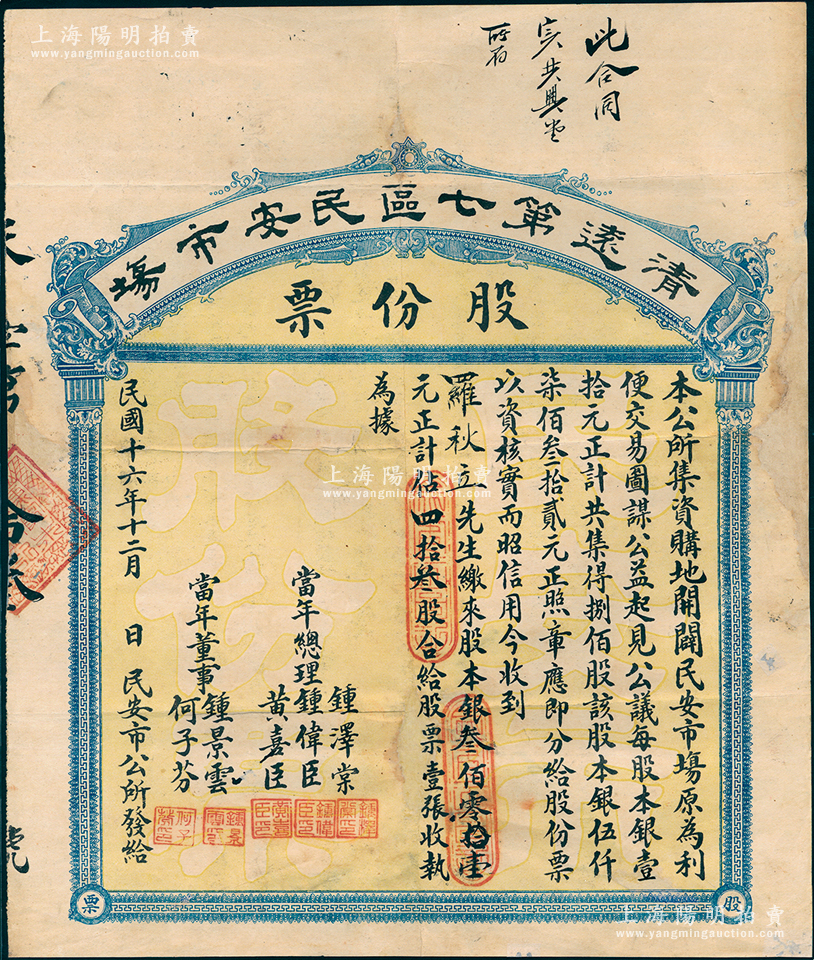 上海陽明拍賣
www.yangmingauction.com
此合同
實共興堂
所有
清遠第七區民安市場
股份票
本公所集資購地開闢民安市場原為利
便交易圖謀公益起見公議每股本銀壹
拾元正計共集得捌佰股該股本銀伍仟
柒佰叁拾貳元正照章應即分給股份票
以資核實而昭信用今收到
羅秋立先生繳來股本銀叁佰零拾壹
元正計佔四拾叁股合給股票壹張收執
為據
當年總理
鍾澤棠
鍾偉臣
黃嘉臣
當年董事
鍾景雲
何子芬
民國十六年十二月 日 民安市公所發給
號
股份票
票
股
上海陽明拍賣
www.yangmingauction.com
上海陽明拍賣
www.yangmingauction.com